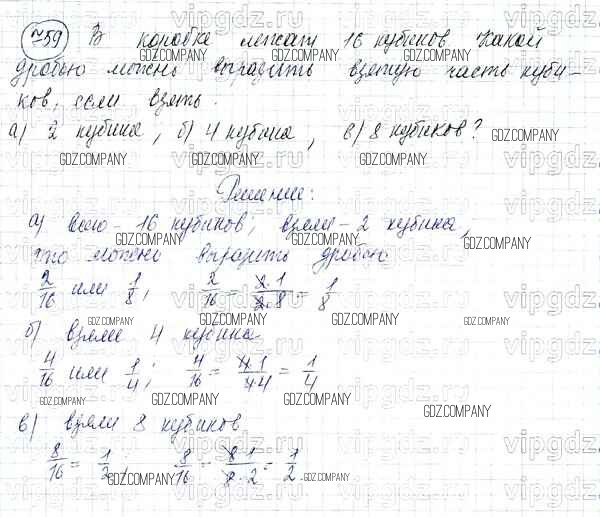 №59 В коробке лежат 16 кубиков Какой
дробью можно выразить взятую часть куби-
ков, если взять:
а) 2 кубика, б) 4 кубика, в) 8 кубиков?
Решение:
а) всего - 16 кубиков, взяли - 2 кубика,
это можно выразить дробью
2/16 или 1/8; 2/16 = 2·1/2·8 = 1/8
б) взяли 4 кубика
4/16 или 1/4; 4/16 = 4·1/4·4 = 1/4
в) взяли 8 кубиков
8/16 = 1/2, 8/16 = 8·1/8·2 = 1/2.
GDZ.COMPANY
vipgdz.ru